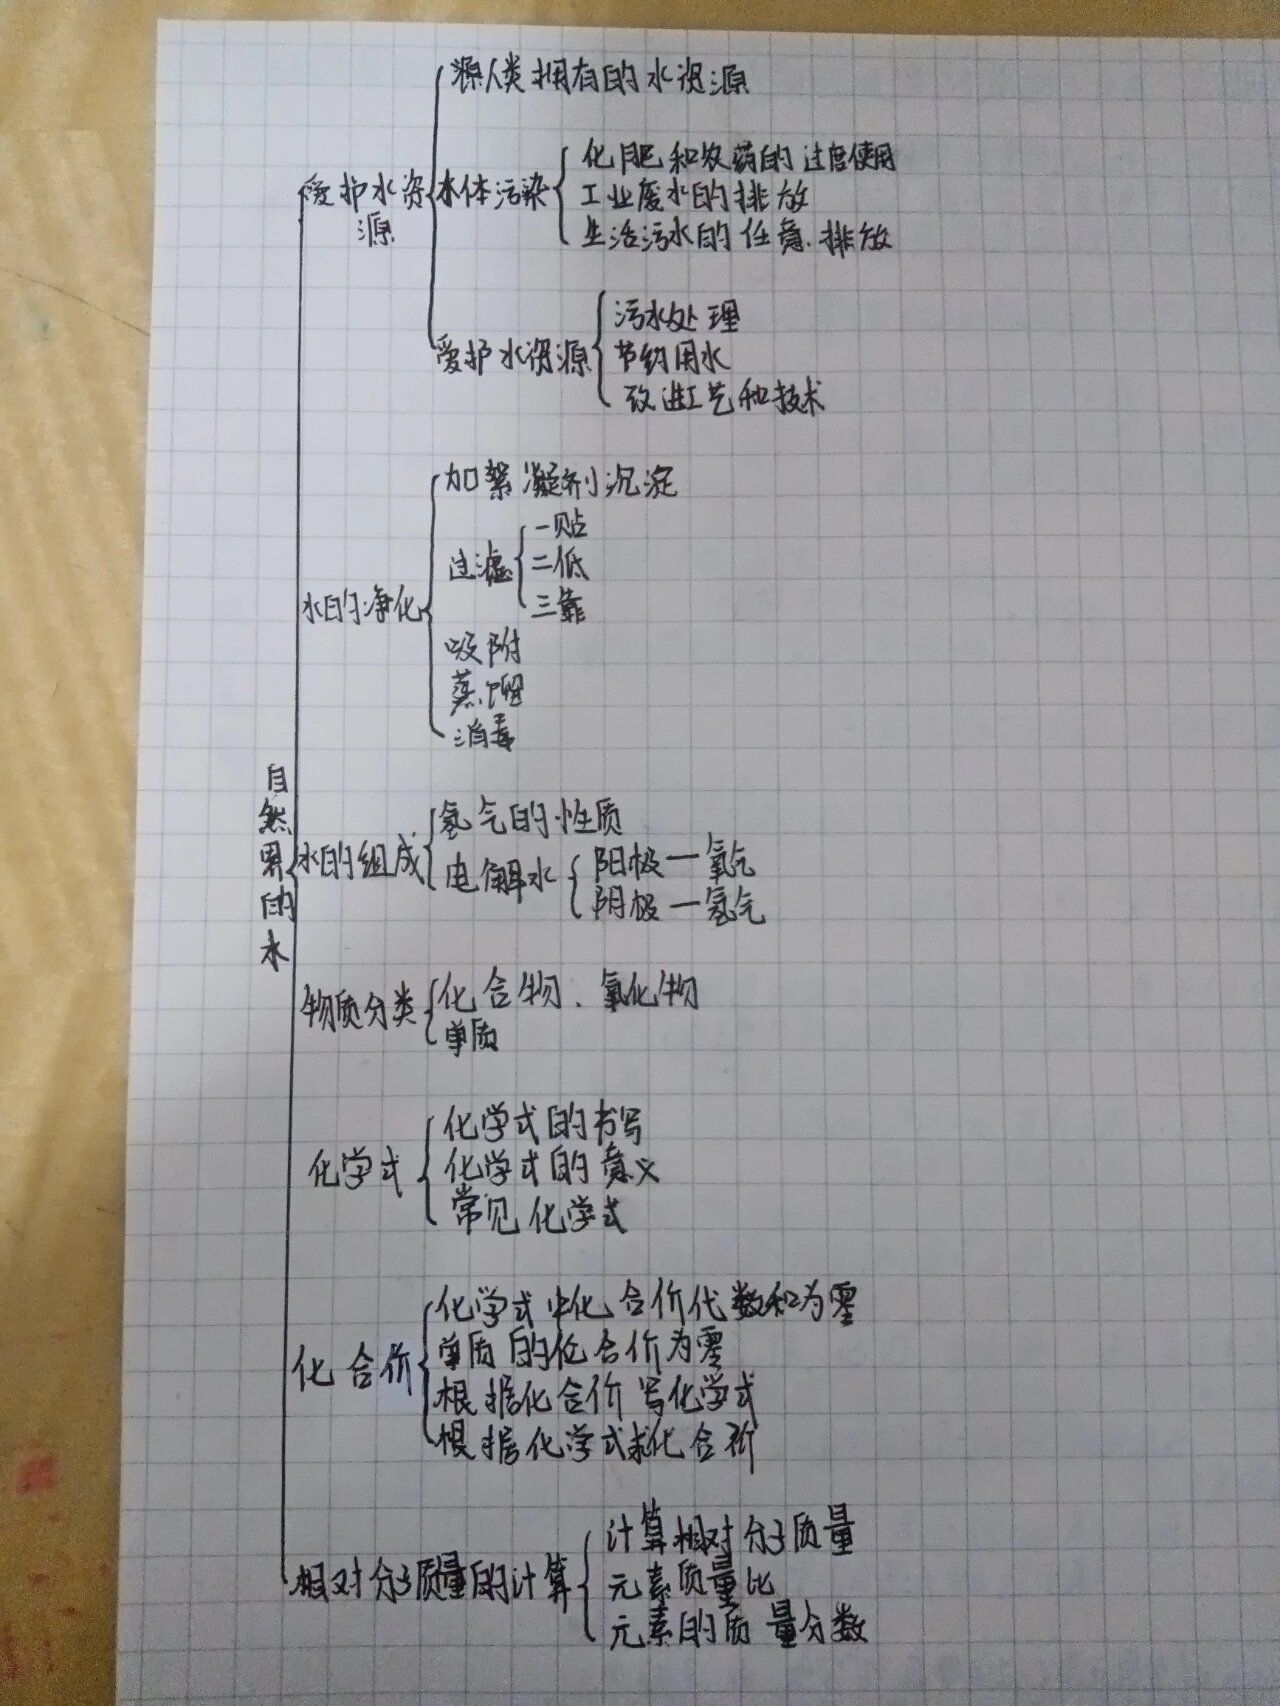 源人类拥有的水资源
爱护水资源
水体污染
化肥和农药的过度使用
工业废水的排放
生活污水的任意排放
爱护水资源
污水处理
节约用水
改进工艺和技术
水的净化
加絮凝剂沉淀
过滤
一贴
二低
三靠
吸附
蒸馏
消毒
自然界的水
水的组成
氢气的性质
电解水
阳极—氧气
阴极—氢气
物质分类
化合物、氧化物
单质
化学式
化学式的书写
化学式的意义
常见化学式
化合价
化学式中化合价代数和为零
单质的化合价为零
根据化合价写化学式
根据化学式求化合价
相对分子质量的计算
计算相对分子质量
元素质量比
元素的质量分数